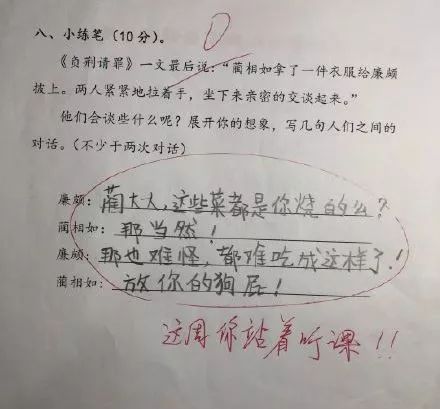 八、小练笔(10分)。
0
《负荆请罪》一文最后说:“蔺相如拿了一件衣服给廉颇
披上。两人紧紧地拉着手,坐下来亲密的交谈起来。”
他们会谈些什么呢?展开你的想象,写几句人们之间的
对话。(不少于两次对话)
廉颇:蔺大人,这些菜都是你烧的么?
蔺相如:那当然!
廉颇:那也难怪,都难吃成这样了!
蔺相如:放你的狗屁!
这周你站着听课!!